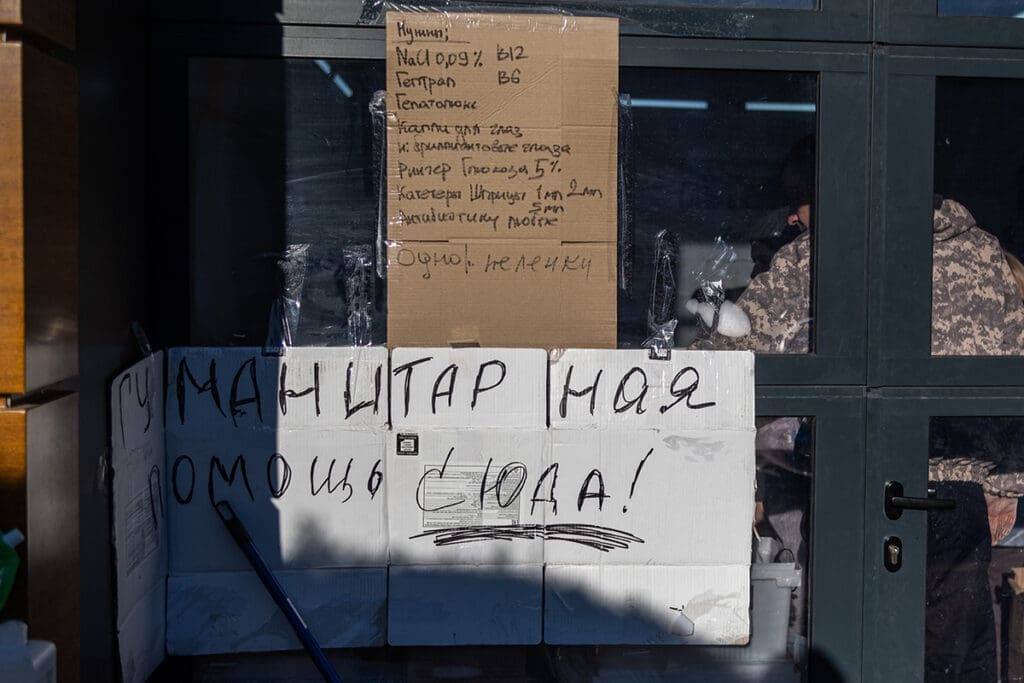 Нужны:
NaCl 0,09% B12
Гептрал B6
Капли для глаз
Рингер Глюкоза 5%
Катетеры Шприцы 1мл 2мл
5мл
Антибиотики любые
Однор. пеленки
ГУМАНИТАРНАЯ
ПОМОЩЬ СЮДА!